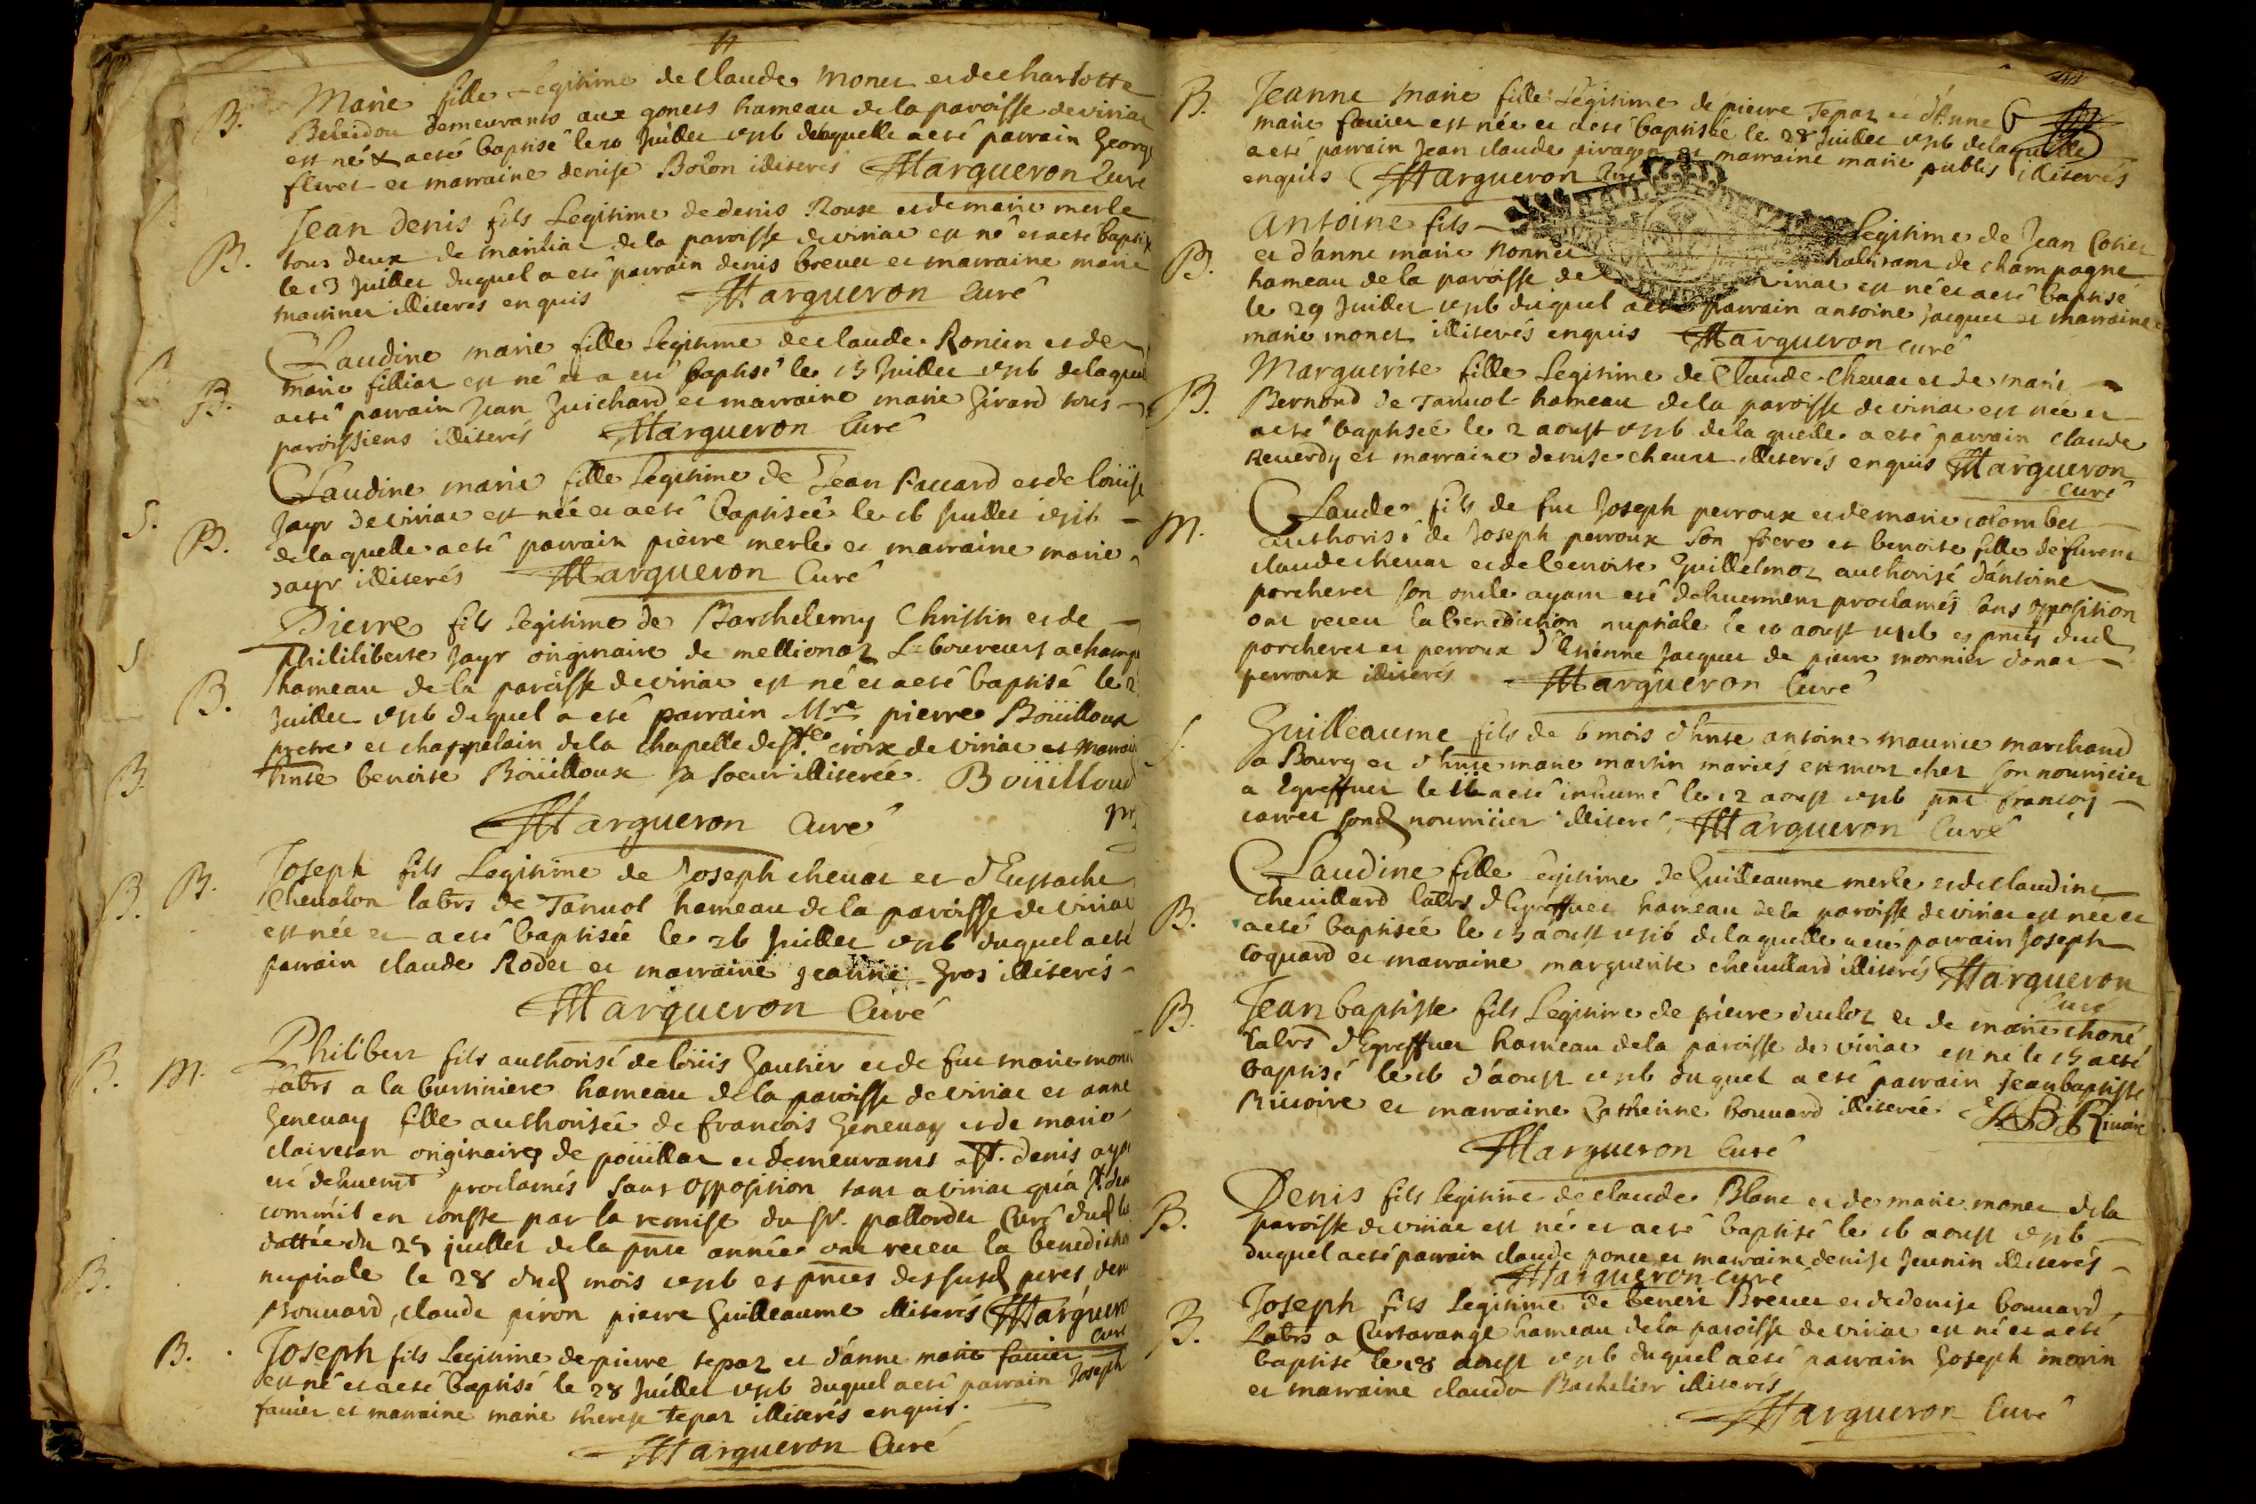 B. Marie fille Legitime de Claude Monet et de charlotte
demeurants aux gonets hameau de la paroisse de viriat
est né & a eté baptisé le 10 Juillet 1716 de laquelle a eté parrain George
et marraine denise Bolon illiterés Margueron Curé
B. Jean Denis fils Legitime de denis Roux et de marie merle
tous deux de marillat de la paroisse de viriat est né et a eté baptisé
le 13 Juillet duquel a eté parrain denis brevet et marraine marie
illiterés enquis Margueron Curé
B. Claudine marie fille Legitime de claude Roncin et de
marie filliat est né et a eté baptisé le 15 Juillet 1716 de laquel
a eté parrain Jean Guichard et marraine marie Girard tous
paroissiens illiterés Margueron Curé
B. Claudine marie fille Legitime de Jean favard et de loüise
Jayr de viriat est née et a eté baptisée le 16 Juillet 1716
de laquelle a eté parrain pierre merle et marraine marie
Jayr illiterés Margueron Curé
B. Pierre fils legitime de Barthelemy Christin et de
philiberte Jayr originaire de mellionaz
hameau de la paroisse de viriat est né et a eté baptisé le
Juillet 1716 duquel a eté parrain Mre pierre Boüilloux
pretre et chappelain de la chapelle de Ste croix de viriat et marrain
benoite Boüilloux sa soeur illiterée. Boüilloud
Margueron Curé
B. Joseph fils Legitime de Joseph chevat et d'Eustache
Chevalon labrs de Tanvol hameau de la paroisse de viriat
est née et a eté baptisée le 26 Juillet 1716 duquel a eté
parrain claude Rodet et marraine jeanne Gros illiterés
Margueron Curé
M. Philibert fils authorisé de loüis Gautier et de fue marie mone
labrs a la hameau de la paroisse de viriat et anne
Genevay fille authorisée de francois Genevay et de marie
clairetan originaires de poüillat et demeurants a St. denis ayan
eté dehuemt proclamés sans opposition tant a viriat qu'a St den
en conste par la remise du Sr. pallordet Curé dud lie
dattée du 25 juillet de la pnte année ont receu la benediction
nuptiale le 28 dud mois 1716 es pntes des susd peres,
Bouvard, claude piron pierre Guilleaume illiterés Margueron
Curé
B. Joseph fils Legitime de pierre tepaz et d'anne marie favier
est né et a eté baptisé le 28 Juillet 1716 duquel a eté parrain Joseph
favier et marraine marie therese tepaz illiterés enquis.
Margueron Curé
B. Jeanne Marie fille Legitime de pierre Tepaz et d'Anne
marie favier est née et a eté baptisée le 28 Juillet 1716 de laquelle
a eté parrain Jean claude et marraine marie publis illiterés
enquis Margueron Curé
B. Antoine fils Legitime de Jean Cotier
et d'anne marie habitans de champagne
hameau de la paroisse de viriat est né et a eté baptisé
le 29 Juillet 1716 duquel a eté parrain antoine Jacquet et marraine
marie monet illiterés enquis Margueron curé
B. Marguerite fille Legitime de Claude Chevat et de marie
Bernard de Tanvol hameau de la paroisse de viriat est née et
a eté baptisée le 2 aoust 1716 de la quelle a eté parrain claude
Reverdy et marraine denise chevat illiterés enquis Margueron
Curé
M. Claude fils de fue Joseph perroux et de marie colombet
authorisé de Joseph perroux son frere et benoite fille de furent
claude chevat et de benoite Guillelmoz authorisé d'antoine
porcheret son oncle ayant eté dehuement proclamés sans opposition
ont receu la benediction nuptiale le 10 aoust 1716 es pntes dud
porcheret et perroux d'Etienne Jacquet de pierre monnier
perroux illiterés Margueron Curé
S. Guilleaume fils de 6 mois d'hnte antoine maurice marchand
a Bourg et d'hnte marie martin mariés est mort chez son nourricier
a Egreffuet le 11 a eté inhumé le 12 aoust 1716 pnt francois
carret sond nourricier illiteré Margueron Curé
B. Claudine fille Legitime de Guilleaume merle et de claudine
chevillard labrs d'Egreffuet hameau de la paroisse de viriat est née et
a eté baptisée le 15 aoust 1716 de laquelle a eté parrain Joseph
Coquard et marraine marguerite chevillard illiterés Margueron
Curé
B. Jean baptiste fils Legitime de pierre duclos et de marie choné
labrs d'Egreffuet hameau de la paroisse de viriat est né le 15 a eté
baptisé le 16 d'aoust 1716 duquel a eté parrain Jean baptiste
Rivoire et marraine Catherine bouvard illiterée J. B. Rivoire
Margueron Curé
B. Denis fils legitime de claude Blanc et de marie monet de la
paroisse de viriat est né et a eté baptisé le 16 aoust 1716
duquel a eté parrain claude ponce et marraine denise Jeunin illiterés
Margueron Curé
B. Joseph fils Legitime de benoit Brevet et de denise bouvard
Labrs a Curtarange hameau de la paroisse de viriat est né et a eté
baptisé le 18 aoust 1716 duquel a eté parrain Joseph morin
et marraine clauda Bachelier illiterés
Margueron Curé